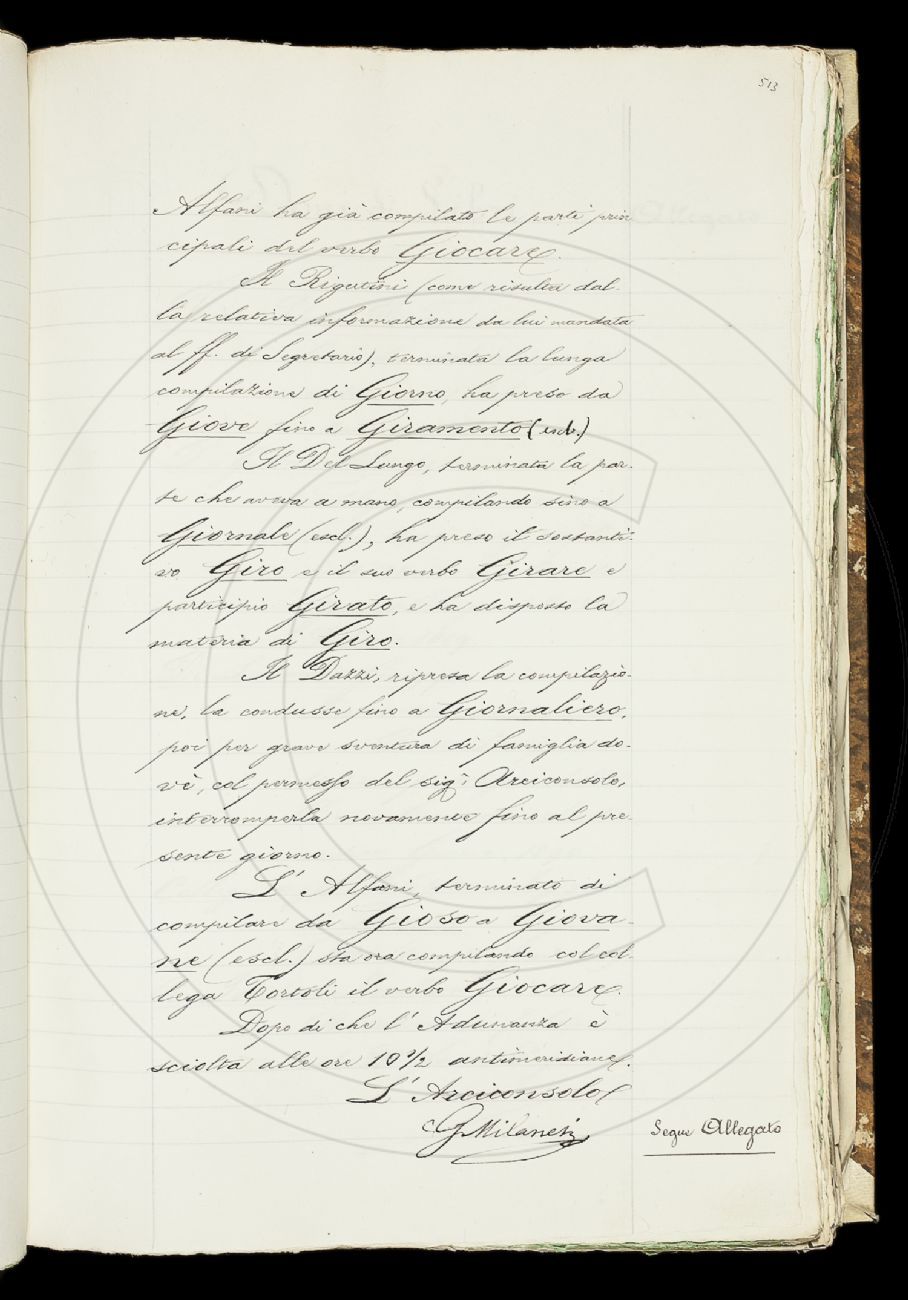 513
Alfani ha già compilato le parti prin
cipali del verbo Giocare.
Il Rigutini (come risulta dal-
la relativa informazione da lui mandata
al ff. di Segretario), terminata la lunga
compilazione di Giorno, ha preso da
Giove fino a Giramento (escl.)
Il Del Lungo, terminata la par-
te che aveva a mano, compilando sino a
Giornale (escl.), ha preso il sostanti-
vo Giro e il suo verbo Girare e
participio Girato, e ha disposto la
materia di Giro.
Il Dazzi, ripresa la compilazio-
ne, la condusse fino a Giornaliero,
poi per grave sventura di famiglia do-
vè, col permesso del sig. Arciconsolo,
interromperla novamente fino al pre-
sente giorno.
L' Alfani, terminato di
compilare da Gioso a Giova-
ne (escl.) sta ora compilando col col-
lega Tortoli il verbo Giocare.
Dopo di che l' Adunanza è
sciolta alle ore 10 1/2 antimeridiane.
L' Arciconsolo
G Milanesi
Segue Allegato